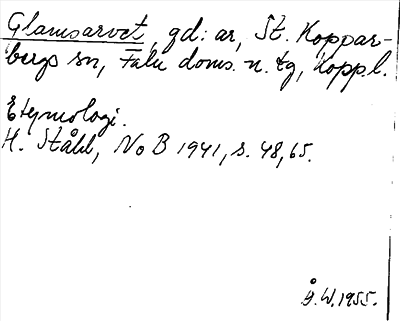 Glamsarvet, gd: ar, St. Koppar-
bergs sn, Falu doms. n. tg, Kopp. l.
Etymologi.
H. Ståhl, NoB 1941, s. 48, 65.
Å.W. 1955.